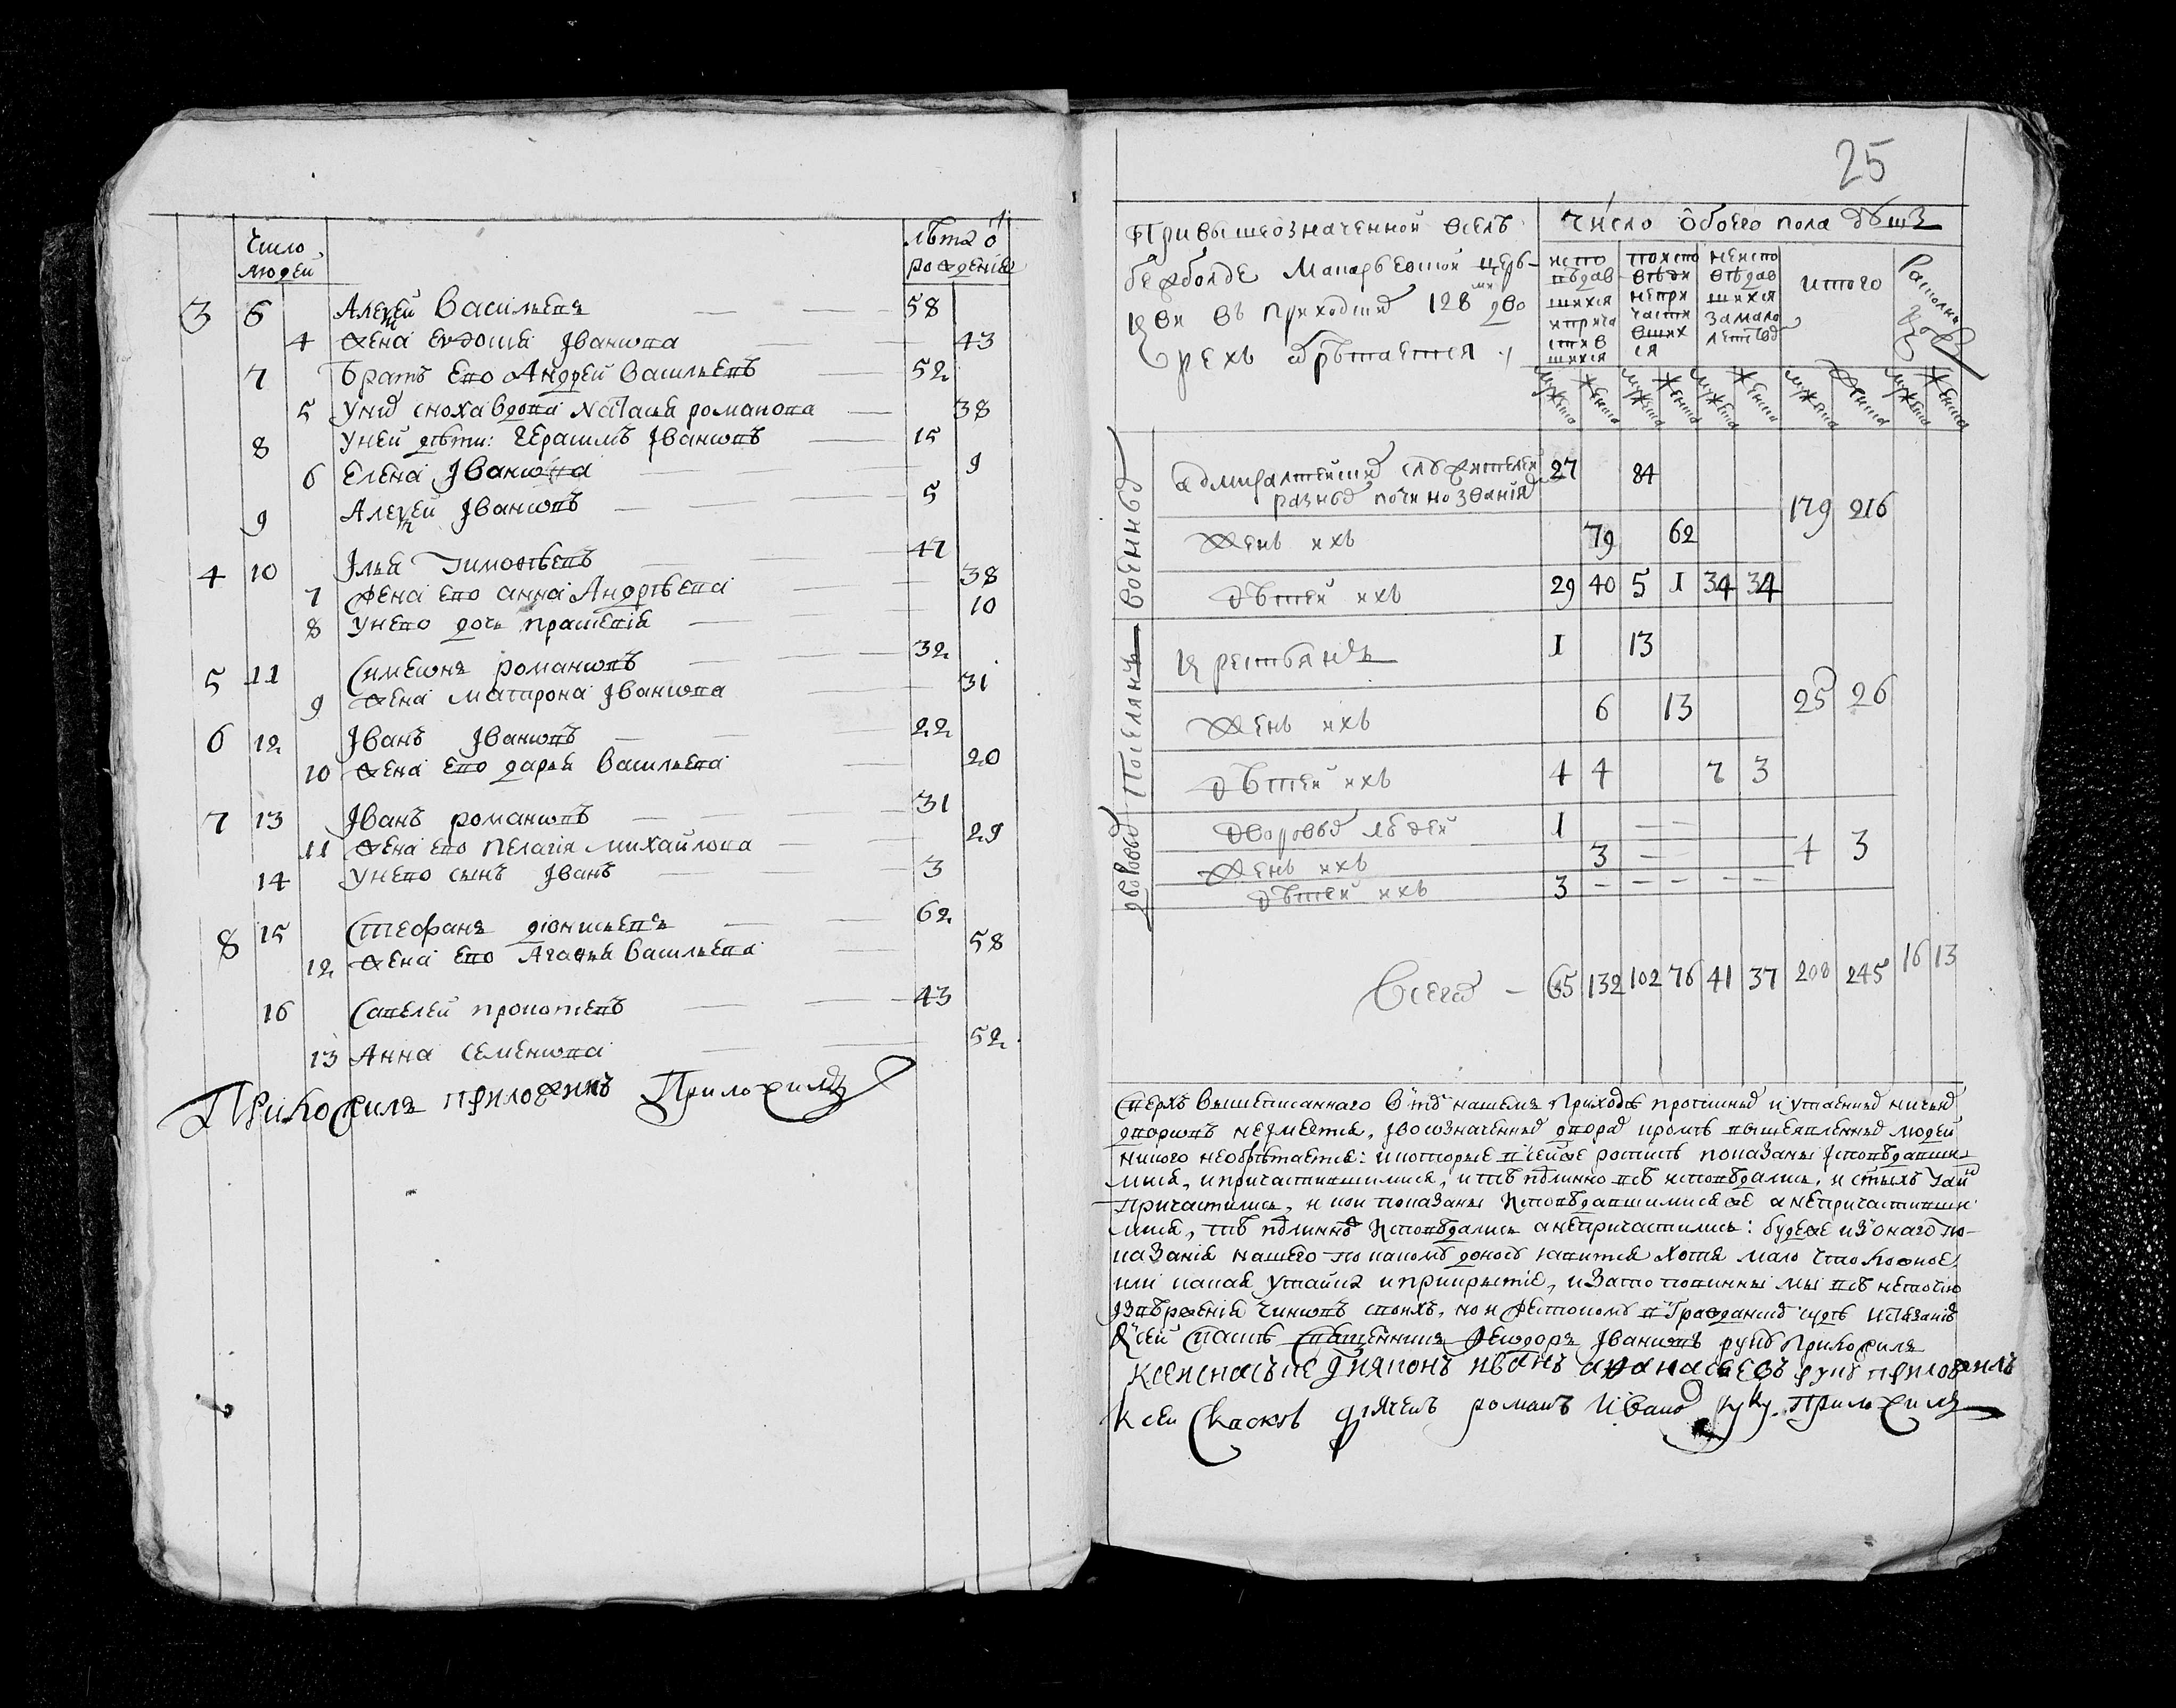 число людей
лѣта ѿ рожденїя
3 6 Алеѯей Васильевъ 58
4 жена евдокїя Іванωва 43
7 Братъ его Андрей Васильевъ 52
5 У них сноха вдова Наталья романова 38
8 У ней дѣти: Герасимъ Іванωвъ 15
6 Елена Іванωва 9
9 Алеѯей Іванωвъ 5
4 10 Ілья Тимоѳѣевъ 47
7 жена ево анна Андрѣева 38
8 У нево дочь прасковїя 10
5 11 Симеωнъ романωвъ 32
9 жена матрона Іванωва 31
6 12 Іванъ Іванωвъ 22
10 жена ево дарья Васильева 20
7 13 Іванъ романωвъ 31
11 жена ево пелагїя михайлова 29
14 У нево сынъ Іванъ 3
8 15 Стефанъ дїонисьевъ 62
12 жена ево Агаѳья Васильева 58
16 Савелей прокофьевъ 43
13 Анна семенωва 52
Приложилъ приложилъ Приложилъ
25
При вышеозначенной в селѣ
Макарьевской церь-
кви въ приходских 128 дво
рехъ обрѣтается
число обоего пола душъ
исповѣдавшихся и причастившихся
по исповѣди не причастившихся
не исповѣдавшихся за малолетством
итого
мужеска женска мужеска женска мужеска женска мужеска женска мужеска женска
военных
адмиралтейских служителей разных по чину званїя 27 84 179 216
женъ ихъ 79 62
дѣтей ихъ 29 40 5 1 34 34
Поселянъ
крестьянъ 1 13 25 26
женъ ихъ 6 13
дѣтей ихъ 4 4 7 3
дворовых
дворовых людей 1 4 3
женъ ихъ 3
дѣтей ихъ 3
Всего 65 132 102 76 41 37 208 245 16 13
сверхъ вышеписаннаго в том нашемъ приходѣ прописных и утаенных ничьих
дворωвъ не имѣется, і во означенных дворах кромѣ вышеявленных людей
никого не обрѣтается: и которые в сей же росписѣ показаны ісповѣдавши-
мися, и причастившимися, и тѣ подлинно всѣ исповѣдались, и стыхъ таин
причастились, и кои показаны исповѣдавшимися же а не причастивши
мися, тѣ подлинно исповѣдались а не причастились: буде же из онаго по-
казанїя нашего по какому доносу явится хотя мало что ложное,
или какая утайка и прикрытїе, и за то повинны мы всѣ не токмо
ізвѣрженїя чинωвъ своихъ, но и жестокому в гражданском судѣ истязанїю
К сей сказкѣ священникъ Феωдоръ Івановъ руку приложилъ
К сеи скаске дияконъ иванъ аѳанасьевъ руку приложилъ
К сеи скаске дьячекъ романъ Иванов руку приложилъ